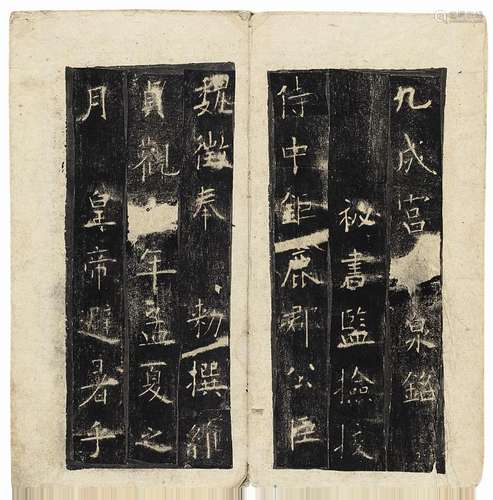 九成宮泉銘
祕書監撿挍
侍中鉅鹿郡公臣
魏徵奉 勅撰維
貞觀年孟夏之
月 皇帝避暑乎